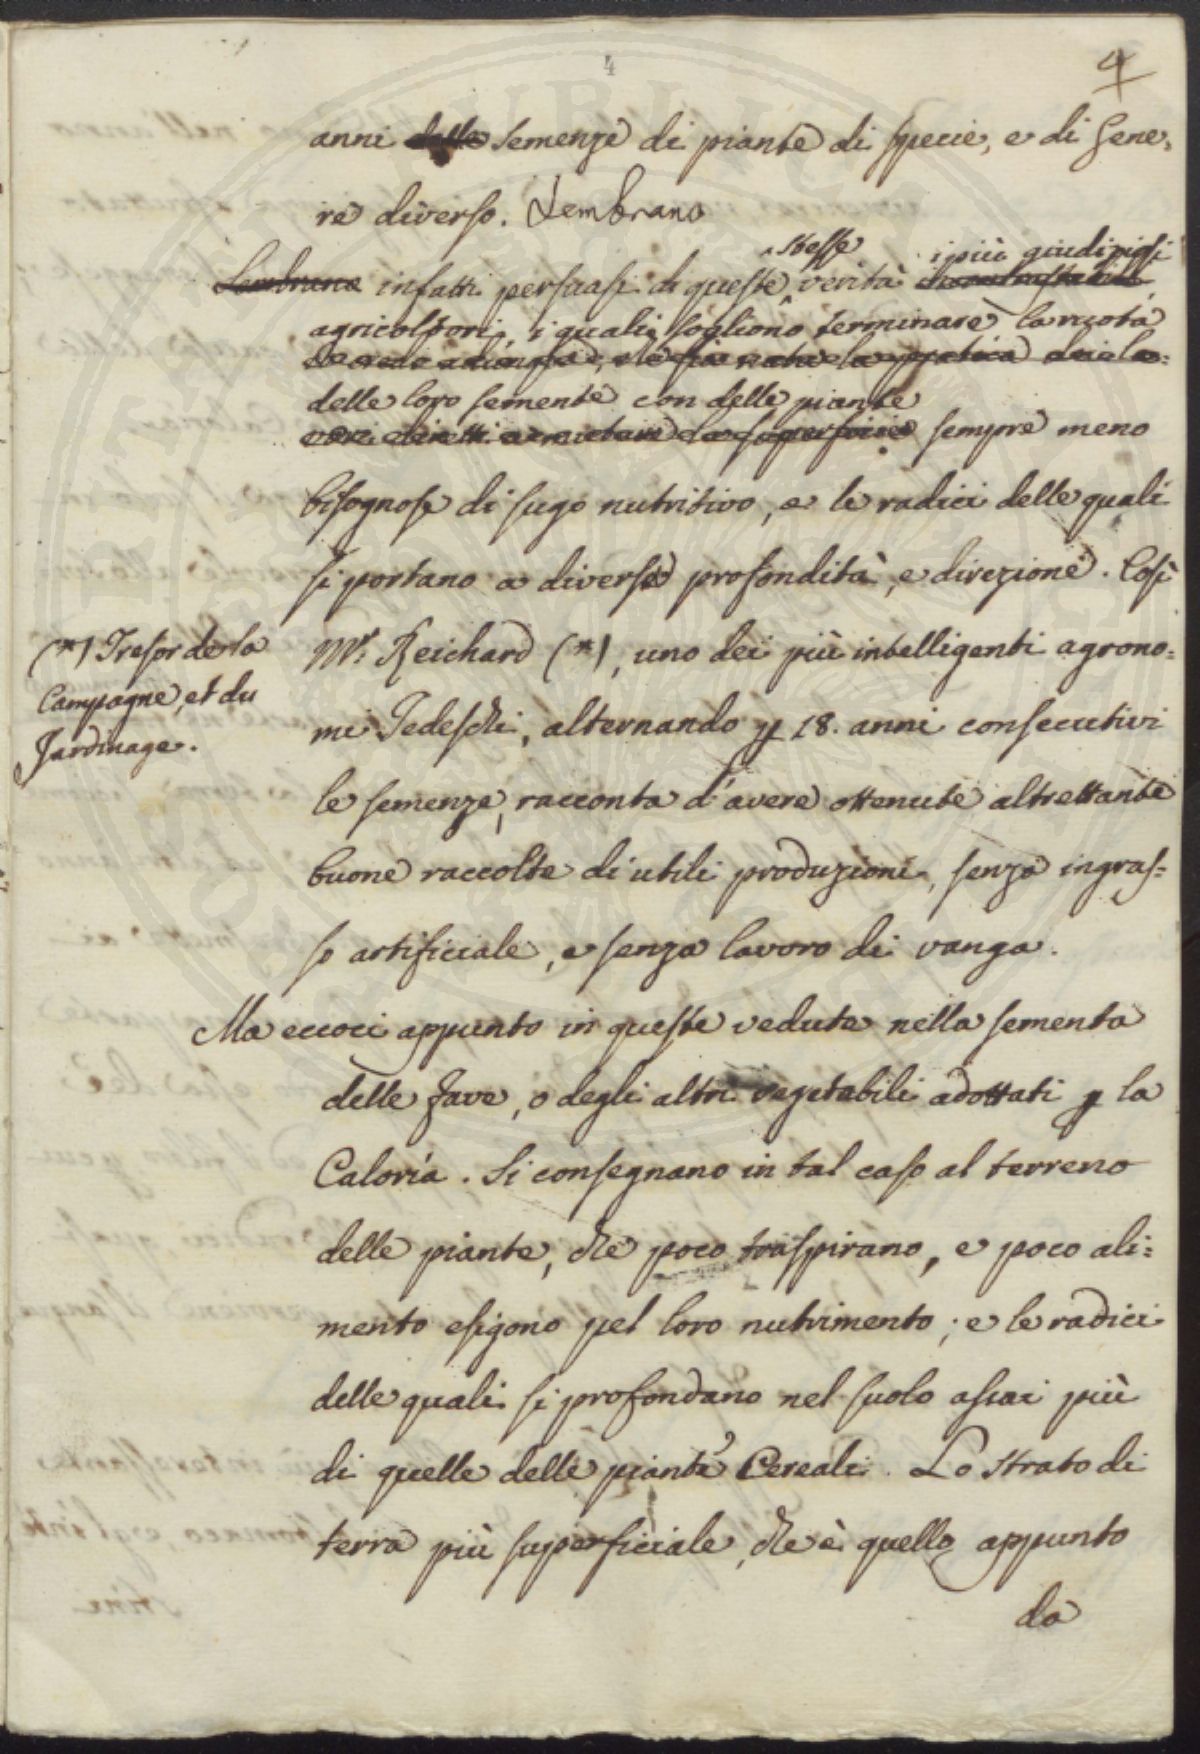 4
4
anni delle semenze di piante di specie, e di Gene,
re diverso. Sembrano
Sembrano infatti persuasi di queste stesse verità incontrastabili i più giudiziosi
agricoltori, i quali sogliono terminare la ruota
delle loro semente con delle piante
sempre meno
bisognose di sugo nutritivo, e le radici delle quali
si portano a diverse profondità, e direzione. Così
(*) Tresor de la
Campagne, et du
Jardinage.
Mr: Reichard (*), uno dei più intelligenti agrono=
mi Tedeschi, alternando p 18. anni consecutivi
le semenze, racconta d'avere ottenute altrettante
buone raccolte di utili produzioni, senza ingras=
so artificiale, e senza lavoro di vanga.
Ma eccoci appunto in queste vedute nella sementa
delle fave, o degli altri vegetabili adottati p la
Caloría. Si consegnano in tal caso al terreno
delle piante, che poco traspirano, e poco ali=
mento esigono pel loro nutrimento; e le radici
delle quali si profondano nel suolo assai più
di quelle delle piante Cereali. Lo strato di
terra più superficiale, che è quello appunto
da